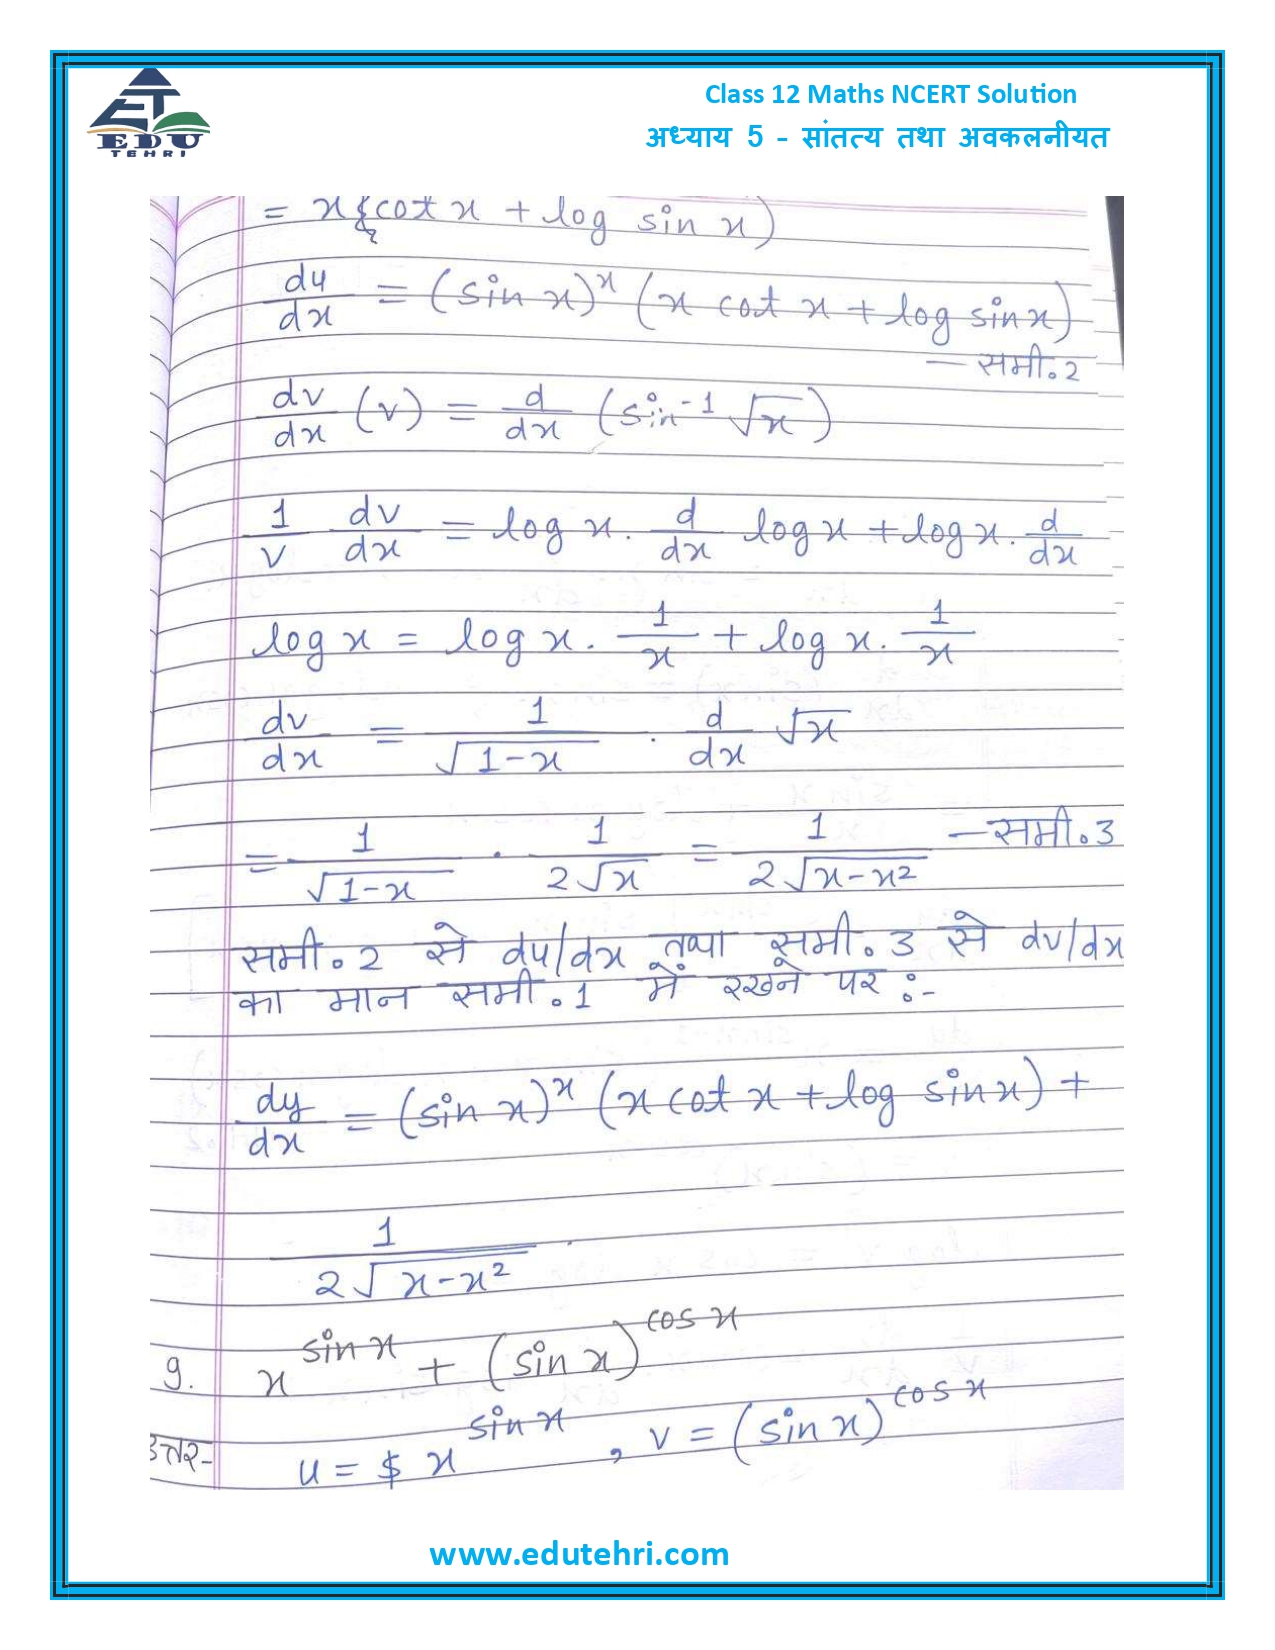 EDU
TEHRI
Class 12 Maths NCERT Solution
अध्याय 5 - सांतत्य तथा अवकलनीयत
= x{cot x + log sin x)
du/dx = (sin x)^x (x cot x + log sin x)
— समी. 2
dv/dx (v) = d/dx (sin^-1 √x)
1/v dv/dx = log x . d/dx log x + log x . d/dx
log x = log x . 1/x + log x . 1/x
dv/dx = 1/√(1-x) . d/dx √x
= 1/√(1-x) . 1/(2√x) = 1/(2√(x-x²)) — समी. 3
समी. 2 से du/dx तथा समी. 3 से dv/dx
का मान समी. 1 में रखने पर :-
dy/dx = (sin x)^x (x cot x + log sin x) +
1/(2√(x-x²)) .
9. x^(sin x) + (sin x)^(cos x)
उत्तर- u = $ x^(sin x) , v = (sin x)^(cos x)
www.edutehri.com